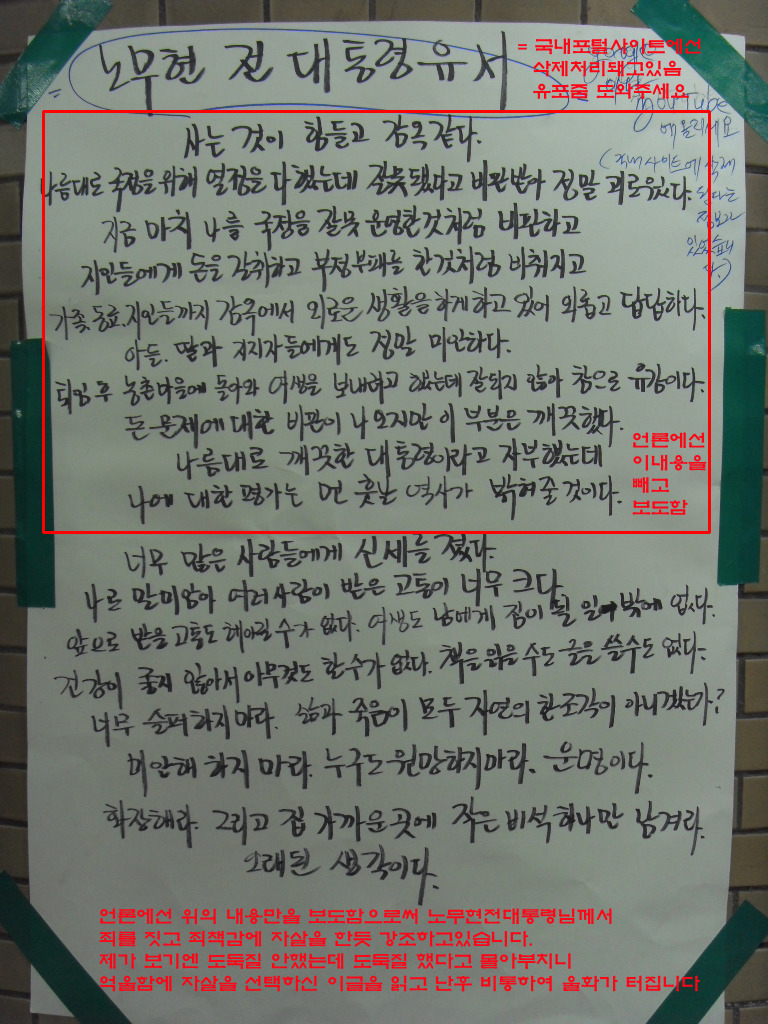 노무현 전 대통령 유서
= 국내포털사아트에선
삭제처리돼고있음
유포줄 도와주세요
YouTube
에 올리세요
(국내 사이트에 삭제
된다는
정보가
있었습니
다.)
사는 것이 힘들고 감옥같다.
나름대로 국정을 위해 열정을 다했는데 잘못됐다고 비판받아 정말 괴로웠다.
지금 마치 나를 국정을 잘못 운영한것처럼 비판하고
지인들에게 돈을 갈취하고 부정부패를 한것처럼 비춰지고
가족, 동료, 지인들까지 감옥에서 외로운 생활을 하게하고 있어 외롭고 답답하다.
아들. 딸과 지지자들에게도 정말 미안하다.
퇴임 후 농촌마을에 돌아와 여생을 보내려고 했는데 잘되지 않아 참으로 유감이다.
돈 문제에 대한 비판이 나오지만 이 부분은 깨끗했다.
나름대로 깨끗한 대통령이라고 자부했는데
나에 대한 평가는 먼 훗날 역사가 밝혀줄 것이다.
언론에선
이내용을
빼고
보도함
너무 많은 사람들에게 신세를 졌다.
나로 말미암아 여러 사람이 받은 고통이 너무 크다
앞으로 받을 고통도 헤아릴 수가 없다. 여생도 남에게 짐이 될 일 밖에 없다.
건강이 좋지 않아서 아무것도 할 수가 없다. 책을 읽을 수도 글을 쓸수도 없다.
너무 슬퍼하지 마라. 삶과 죽음이 모두 자연의 한 조각이 아니겠는가?
미안해 하지 마라. 누구도 원망하지마라. 운명이다.
화장해라. 그리고 집 가까운 곳에 작은 비석 하나만 남겨라.
오래된 생각이다.
언론에선 위의 내용만을 보도함으로써 노무현전대통령님께서
죄를 짓고 죄책감에 자살을 한듯 강조하고있습니다.
제가 보기엔 도둑질 안했는데 도둑질 했다고 몰아부치니
억울함에 자살을 선택하신 이글을 읽고 난후 비통하여 울화가 터집니다